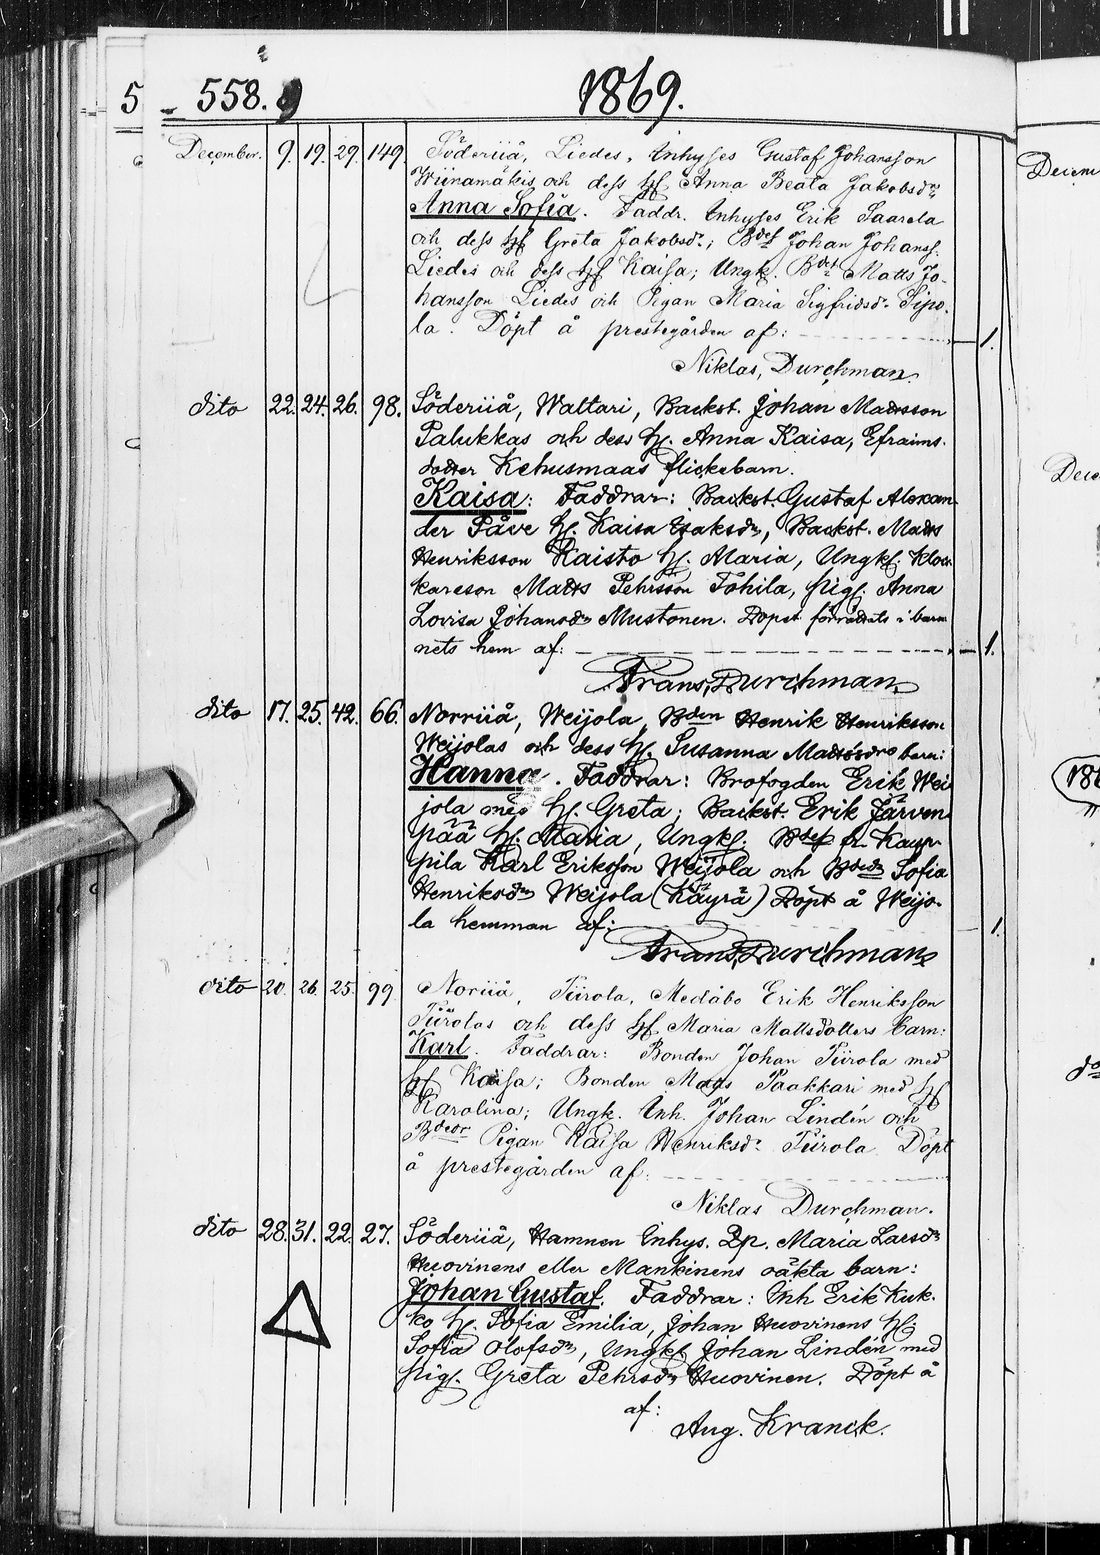 5 558. 1869.
December. 9. 19. 29. 149. Söderiiå, Liedes, Inhyses Gustaf Johansson
Wiinamäkis och dess hf Anna Beata Jakobsdr
Anna Sofia. Faddr. Inhyses Erik Saarela
och dess hf Greta Jakobsdr; Bdef Johan Johanss.
Liedes och dess hf Kaisa; Ungk. Bdef Matts Jo-
hansson Liedes och Pigan Maria Sigfridsdr Sipo-
la. Döpt å prestegården af: 1.
Niklas Durchman.
dito 22. 24. 26. 98. Söderiiå, Waltari, Backst. Johan Mattsson
Palukkas och dess h. Anna Kaisa, Efraims-
dotter Kehusmaas flickebarn.
Kaisa: Faddrar: Backst. Gustaf Alexan-
der Påve h. Kaisa Esaksdr, Backst. Matts
Henriksson Raisto h. Maria, Ungk. Kloc-
kareson Matts Pehrsson Tohila, pig. Anna
Lovisa Johansdr Mustonen. Dopet förrättats i bar-
nets hem af: 1.
Frans Durchman
dito 17. 25. 42. 66. Norriiå, Weijola, Bden Henrik Henriksson
Weijolas och dess h. Susanna Mattsdrs barn:
Hanna. Faddrar: Brofogden Erik Wei-
jola med h. Greta; Backst. Erik Järven-
pää h. Maria, Ungk. Bdef fr. Kaup-
pila Karl Eriksson Weijola och Bdedr Sofia
Henriksdr Weijola (Käyrä) Döpt å Weijo-
la hemman af: 1.
Frans Durchman
dito 20. 26. 25. 99. Noriiå, Tiirola, Medåbo Erik Henriksson
Tiirolas och dess hf Maria Mattsdotters barn:
Karl. Faddrar: Bonden Johan Tiirola med
hf Kaisa; Bonden Mats Paakkari med hf
Karolina; Ungk. Inh. Johan Lindén och
Pigan Kaisa Henriksdr Tiirola. Döpt
å prestegården af:
Niklas Durchman.
dito 28. 31. 22. 27. Söderiiå, Hamnen Inhys. Qp. Maria Larsdr
Huovinens eller Mankinens oäkta barn:
Johan Gustaf. Faddrar: Inh Erik Kuk-
ko h. Sofia Emilia, Johan Huovinens h.
Sofia Olofsdr, Ungk Johan Lindén med
pig. Greta Pehrsdr Huovinen. Döpt å
af:
Aug. Kranck.